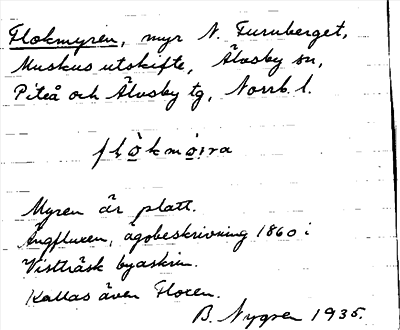 Flokmyren, myr N. Furuberget,
Muskus utskifte, Älvsby sn,
Piteå och Älvsby tg, Norrb. l.
flo̱kmo̱i̯ra
Myren är platt.
Ängfluxen, ägobeskrivning 1860 i
Vistträsk byaskrin.
Kallas även Floxen.
B. Nygren 1935.